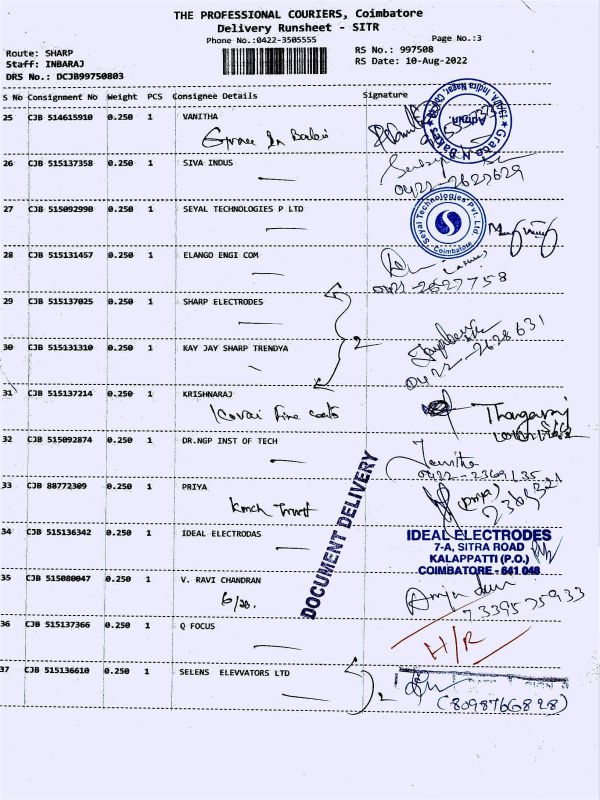 THE PROFESSIONAL COURIERS, Coimbatore
Delivery Runsheet - SITR
Phone No.:0422-3505555
Page No.:3
Route: SHARP
RS No.: 997508
Staff: INBARAJ
RS Date: 10-Aug-2022
DRS No.: DCJB99750803
S No Consignment No Weight PCS Consignee Details Signature
25 CJB 514615910 0.250 1 VANITHA
Grace N Bakes
Admin.
26 CJB 515137358 0.250 1 SIVA INDUS
0422-2627629
27 CJB 515092990 0.250 1 SEYAL TECHNOLOGIES P LTD
Seyal Technologies Pvt. Ltd.
Coimbatore
28 CJB 515131457 0.250 1 ELANGO ENGI COM
0421-2627758
29 CJB 515137025 0.250 1 SHARP ELECTRODES
2
30 CJB 515131310 0.250 1 KAY JAY SHARP TRENDYA
0422-2628631
31 CJB 515137214 0.250 1 KRISHNARAJ
Kovai Fine coats
Thangaraj
32 CJB 515092874 0.250 1 DR.NGP INST OF TECH
0422-2369135
33 CJB 88772309 0.250 1 PRIYA
(priya)
DOCUMENT DELIVERY
34 CJB 515136342 0.250 1 IDEAL ELECTRODAS
IDEAL ELECTRODES
7-A, SITRA ROAD
KALAPPATTI (P.O.)
COIMBATORE - 641 048
35 CJB 515080047 0.250 1 V. RAVI CHANDRAN
6/28.
7339575933
36 CJB 515137366 0.250 1 Q FOCUS
H/R
37 CJB 515136610 0.250 1 SELENS ELEVVATORS LTD
2
(8098766828)